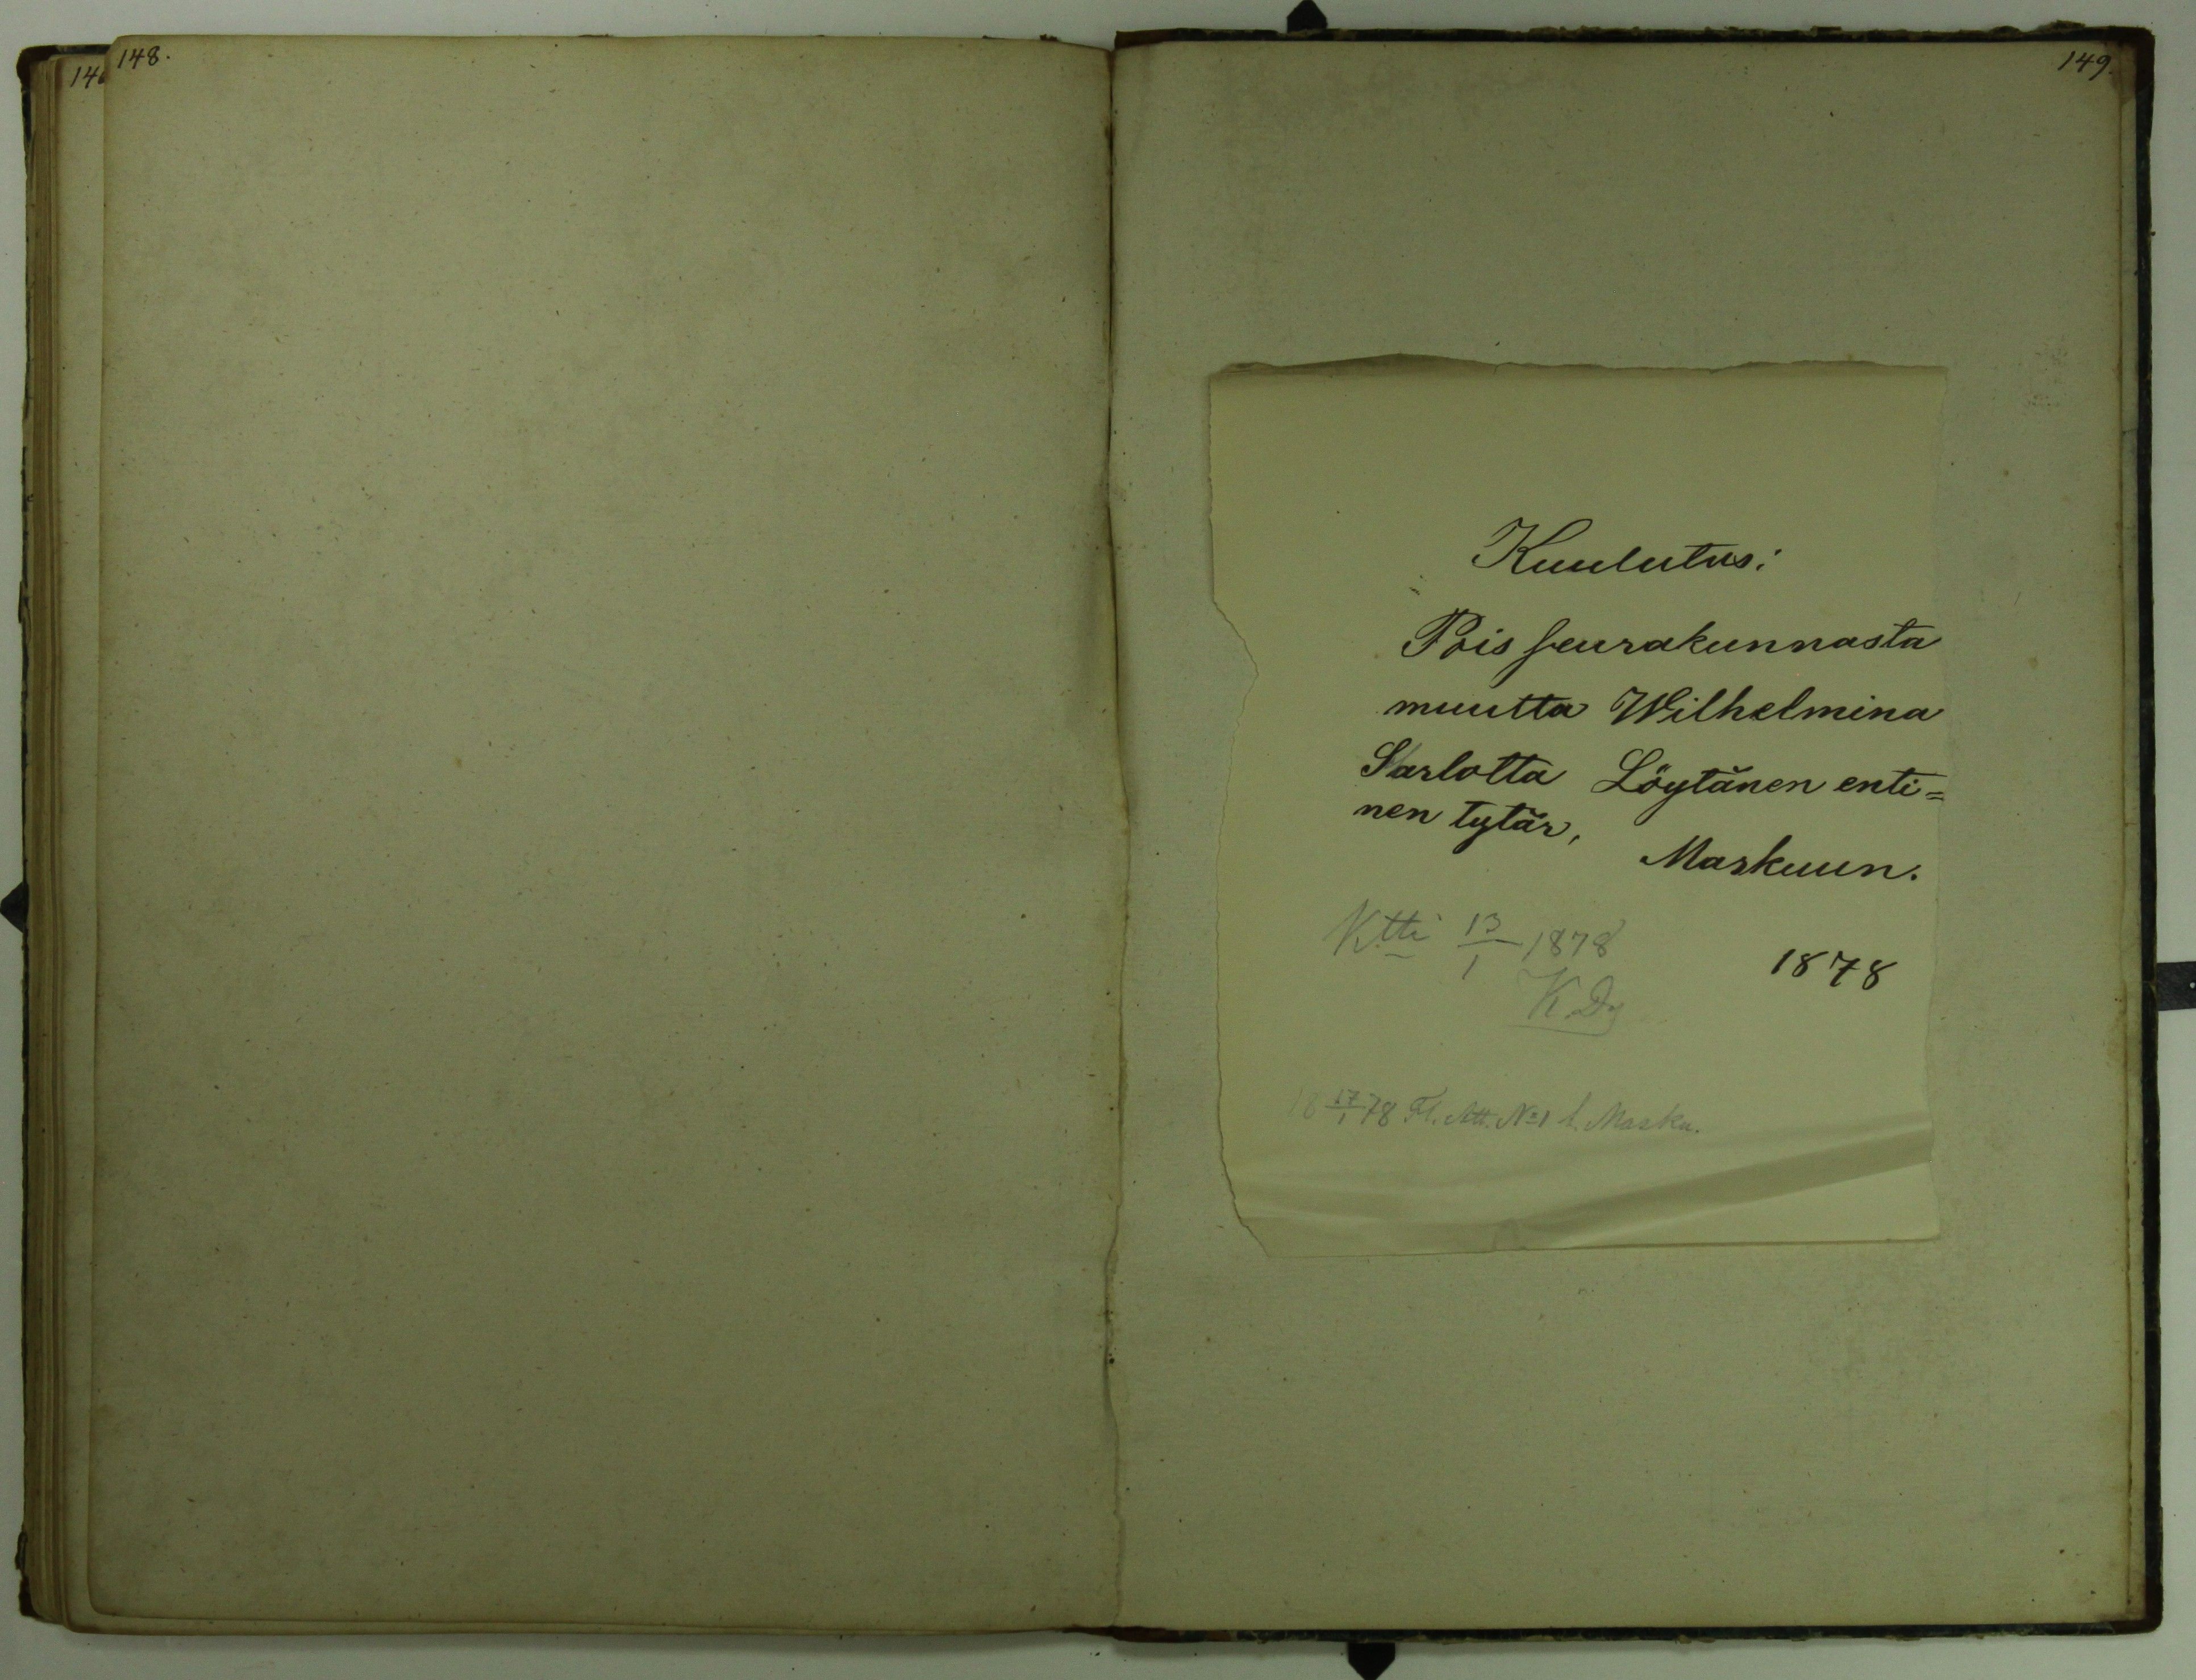 148.
149.
Kuulutus:
Pois seurakunnasta
muutta Wilhelmina
Sarlotta Löytänen enti=
nen tytär,
Maskuun.
K.tti 13/1 1878
1878
18 17/1 78 Fl. Att. No 1 t. Masku.